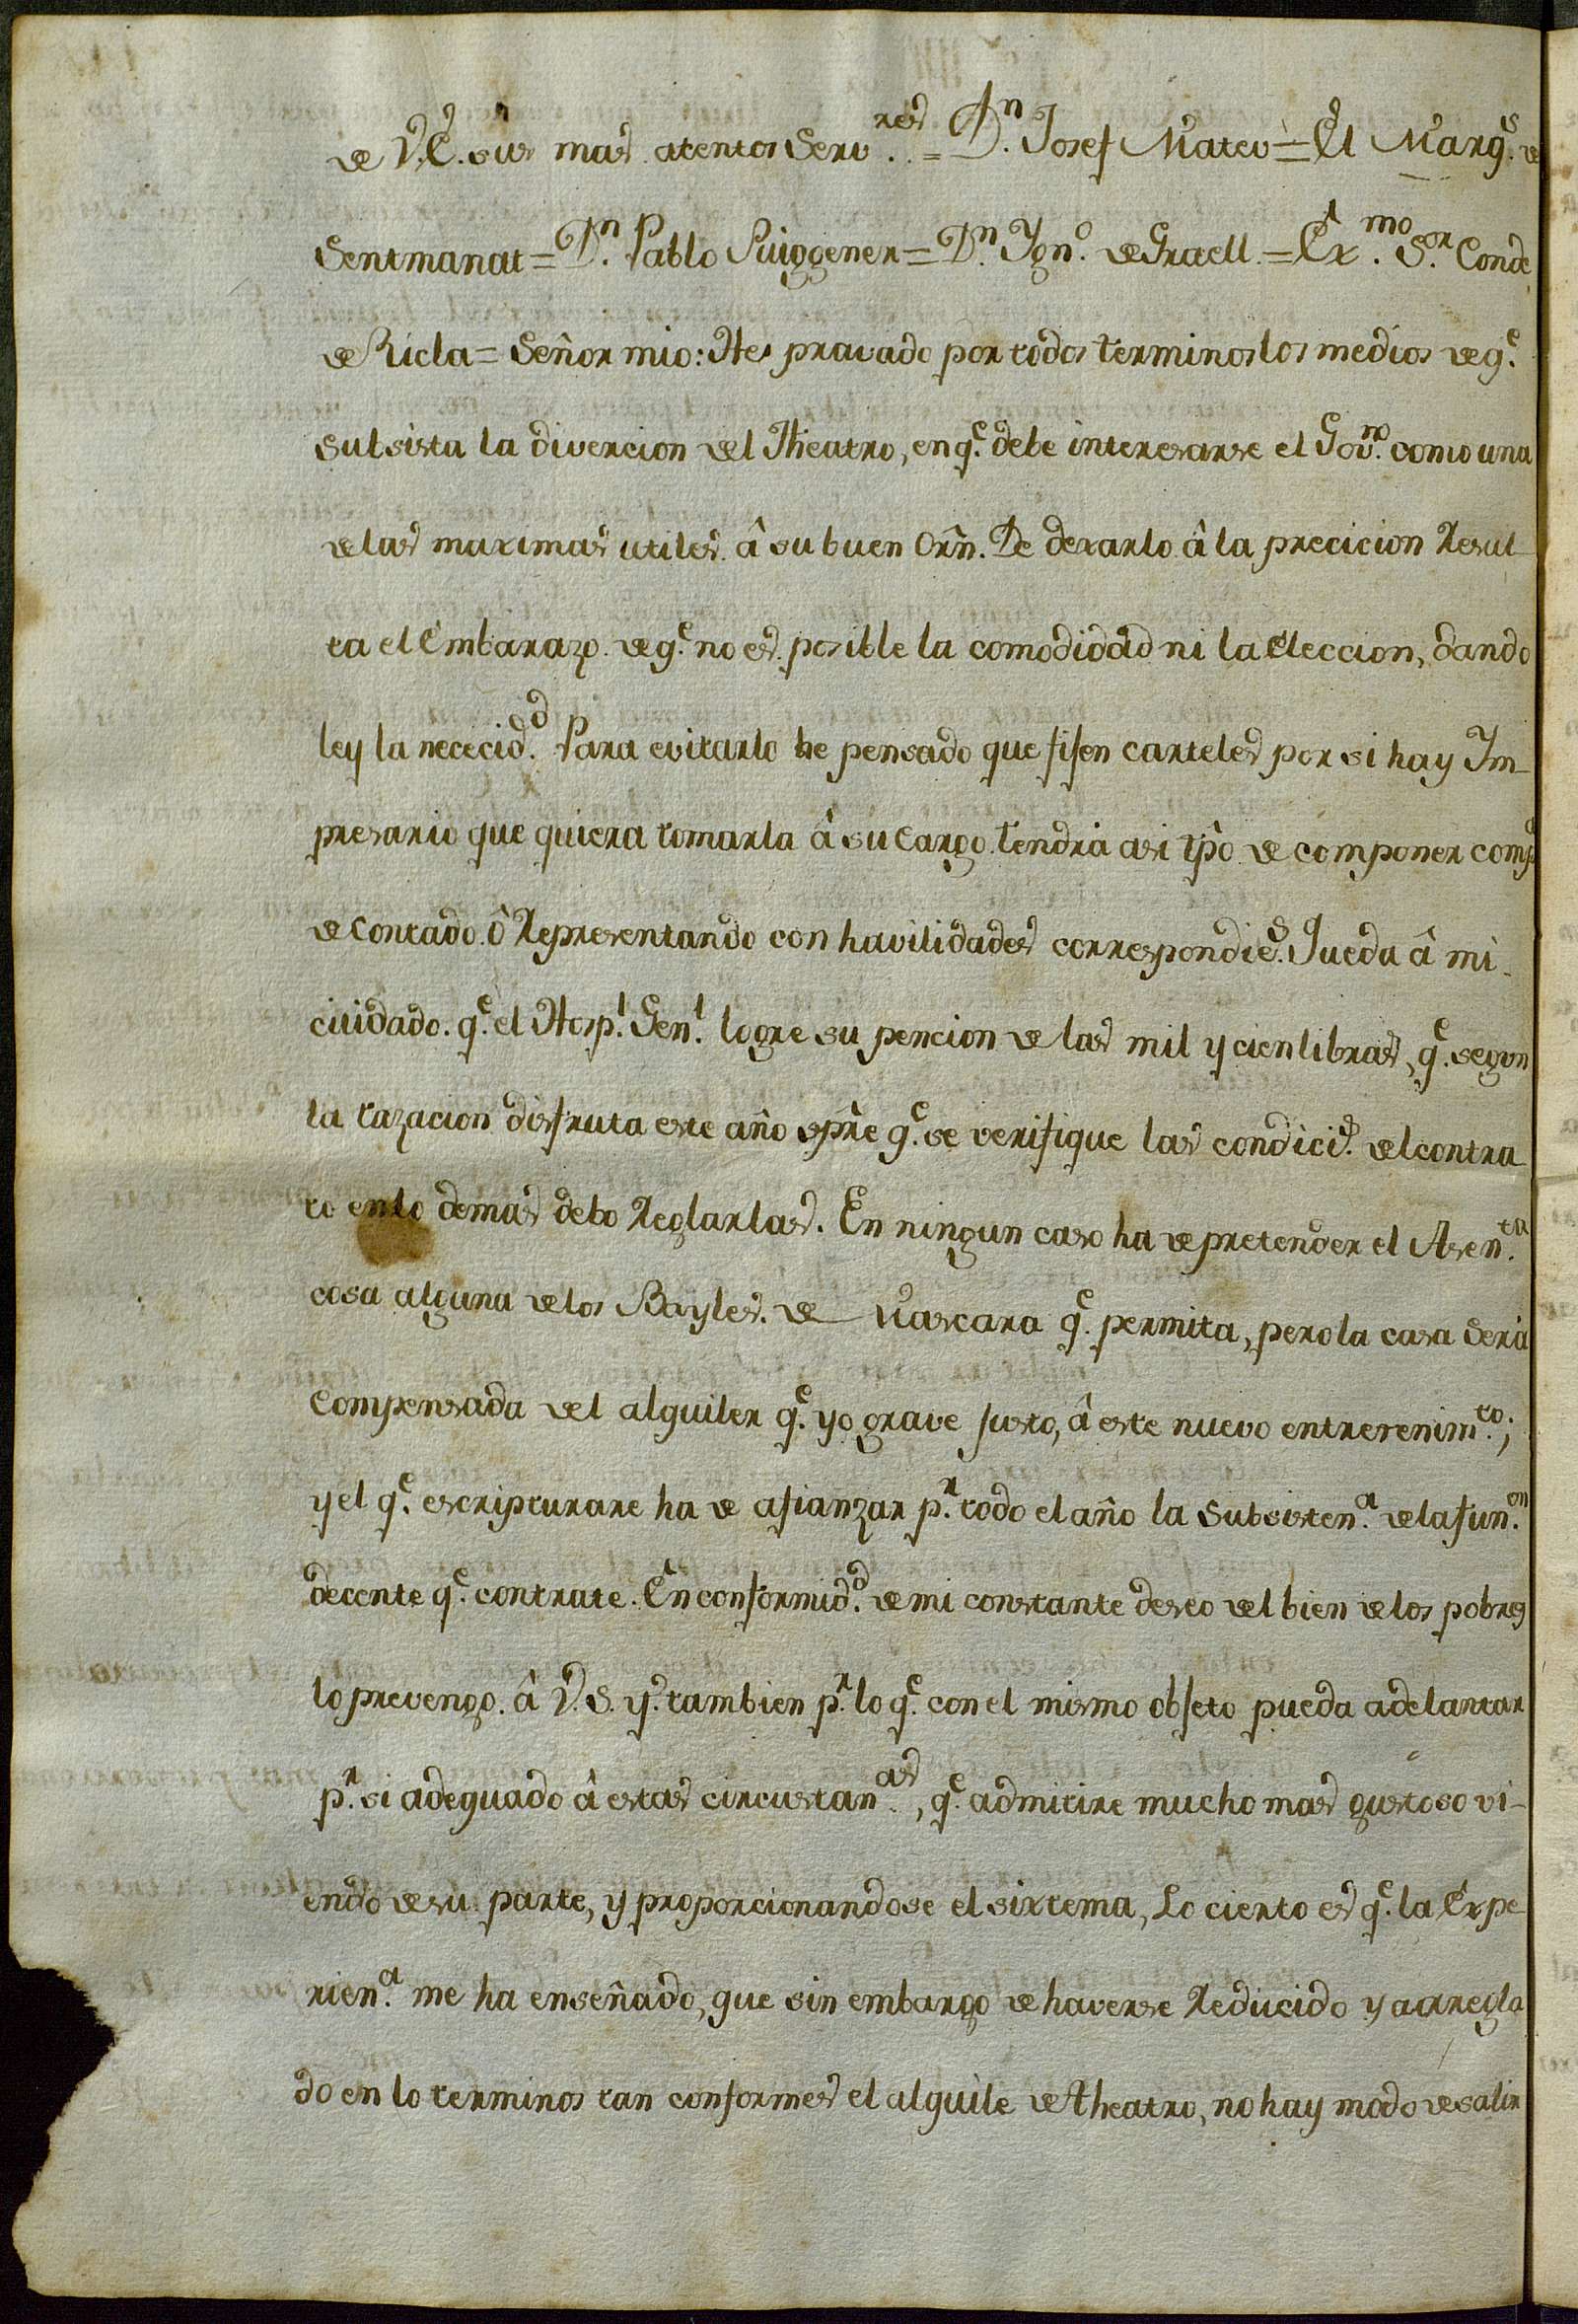 de V.E. sus mas atentos Serv.res = Dn. Josef Mateu = El Marqs. de
Sentmanat = Dn. Pablo Puiggener = Dn. Ygno. de Graell = Exmo. Sor. Conde
de Ricla = Señor mio: He pravado por todos terminos los medios de qe.
subsista la divercion del Theatro, en qe. debe interesarse el Govno. como una
de las maximas utiles â su buen Orñ. De dexarlo â la precicion Resul-
ta el Embarazo de qe. no es posible la comodidad ni la Eleccion, dando
ley la necècidd. Para evitarlo he pensado que fijen carteles por si hay Im-
presario que quiera tomarla â su Cargo tendrá asi tpô de componer compa
de Contado ô Representando con havilidades correspondies. Queda â mi
cuidado qe. el Hospl. Genl. logre su pencion de las mil y cien libras, qe. segun
la tazacion disfruta este año sprê qe. se verifique las condicis. del contra
to en lo demas debo Reglarlas. En ningun caso ha de pretender el Asenta.
cosa alguna de los Bayles de Mascara qe. permita, pero la casa será
Compensada del alquiler qe. yo grave justo, â este nuevo entretenimto.;
y el qe. escripturare ha de afianzar pr. todo el año la Subsistena. de la funon.
decente qe. contrate. En conformidd. de mi constante deseo del bien de los pobres
lo prevengo â V.S. y tambien pr. lo qe. con el mismo objeto pueda adelantar
pr. si adequado â estas circustanas., qe. admitire mucho mas gustoso vi-
endo de su parte, y proporcionandose el sixtema, Lo cierto es qe. la Expe
riena. me ha enseñado, que sin embargo de haverse Reducido y arregla
do en lo terminos tan conformes el alquile de theatro, no hay modo de salir